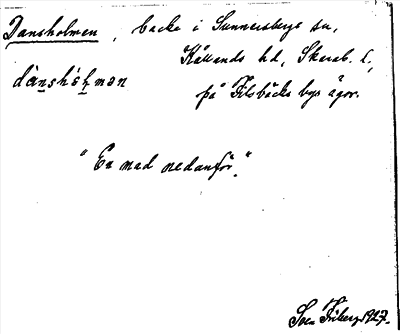 Dansholmen, backe i Sunnersbergs sn,
Kållands hd, Skarab. l.,
på Filsbäcks bys ägor.
"En mad nedanför."
Sven Friberg 1927.